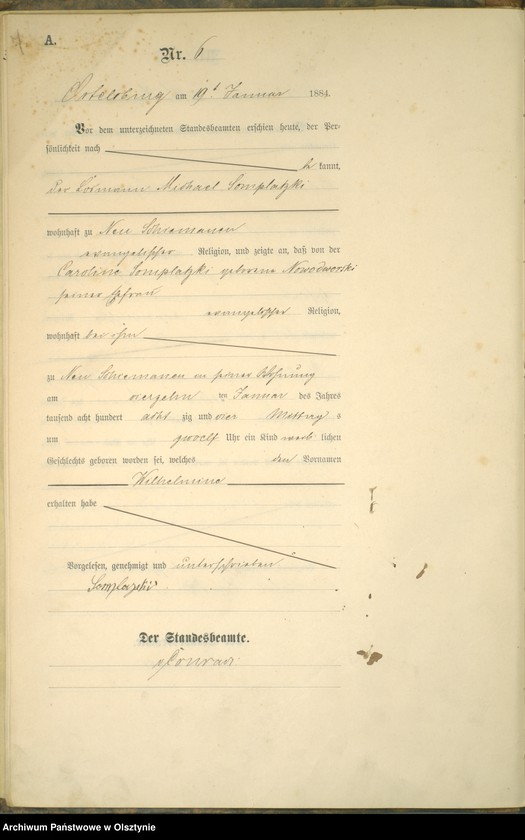 A.
Nr. 6
Ortelsburg am 19t Januar 1884.
Vor dem unterzeichneten Standesbeamten erschien heute, der Per-
sönlichkeit nach
be kannt,
der Losmann Michael Somplatzki
wohnhaft zu Neu Schiemanen
evangelischer Religion, und zeigte an, daß von der
Caroline Somplatzki geborene Nowodworski
seiner Ehefrau
evangelischer Religion,
wohnhaft bei ihm
zu Neu Schiemanen in seiner Wohnung
am vierzehn ten Januar des Jahres
tausend acht hundert acht zig und vier Mittags
um zwoelf Uhr ein Kind weib lichen
Geschlechts geboren worden sei, welches den Vornamen
Wilhelmine
erhalten habe
Vorgelesen, genehmigt und unterschrieben
Somplazki
Der Standesbeamte.
Conrad
Archiwum Państwowe w Olsztynie